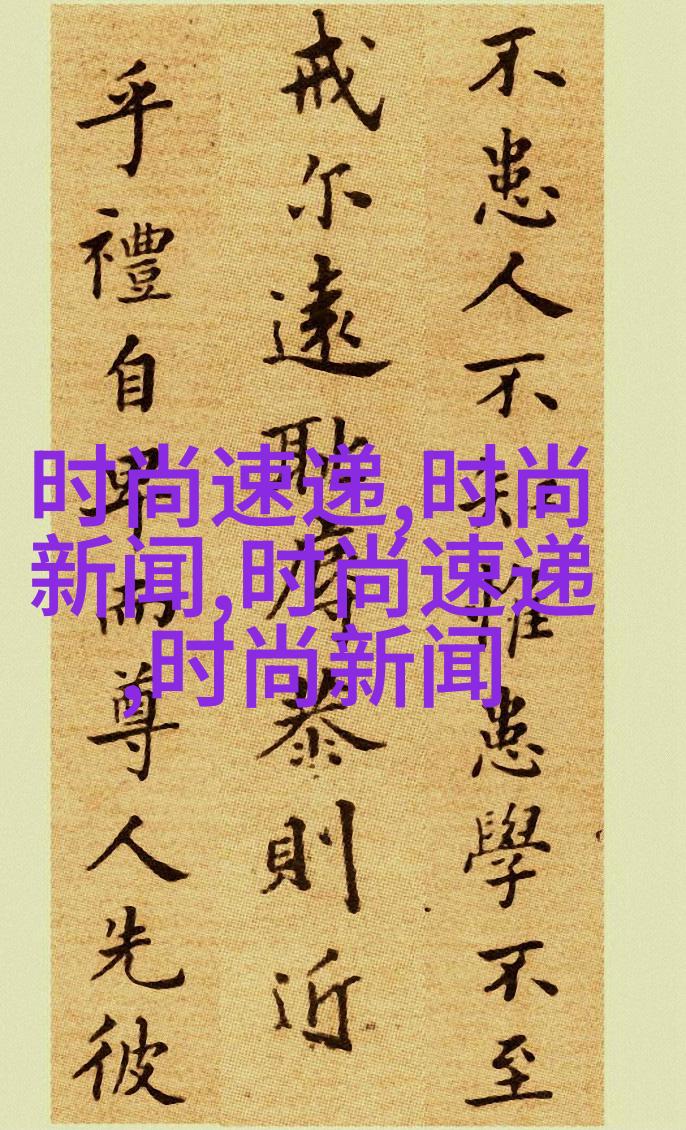 不患人不知惟患學不至
戒尔遠耻辱恭則近
乎禮自卑而尊人先彼
时尚速递,时尚
新闻,时尚速递
,时尚新闻